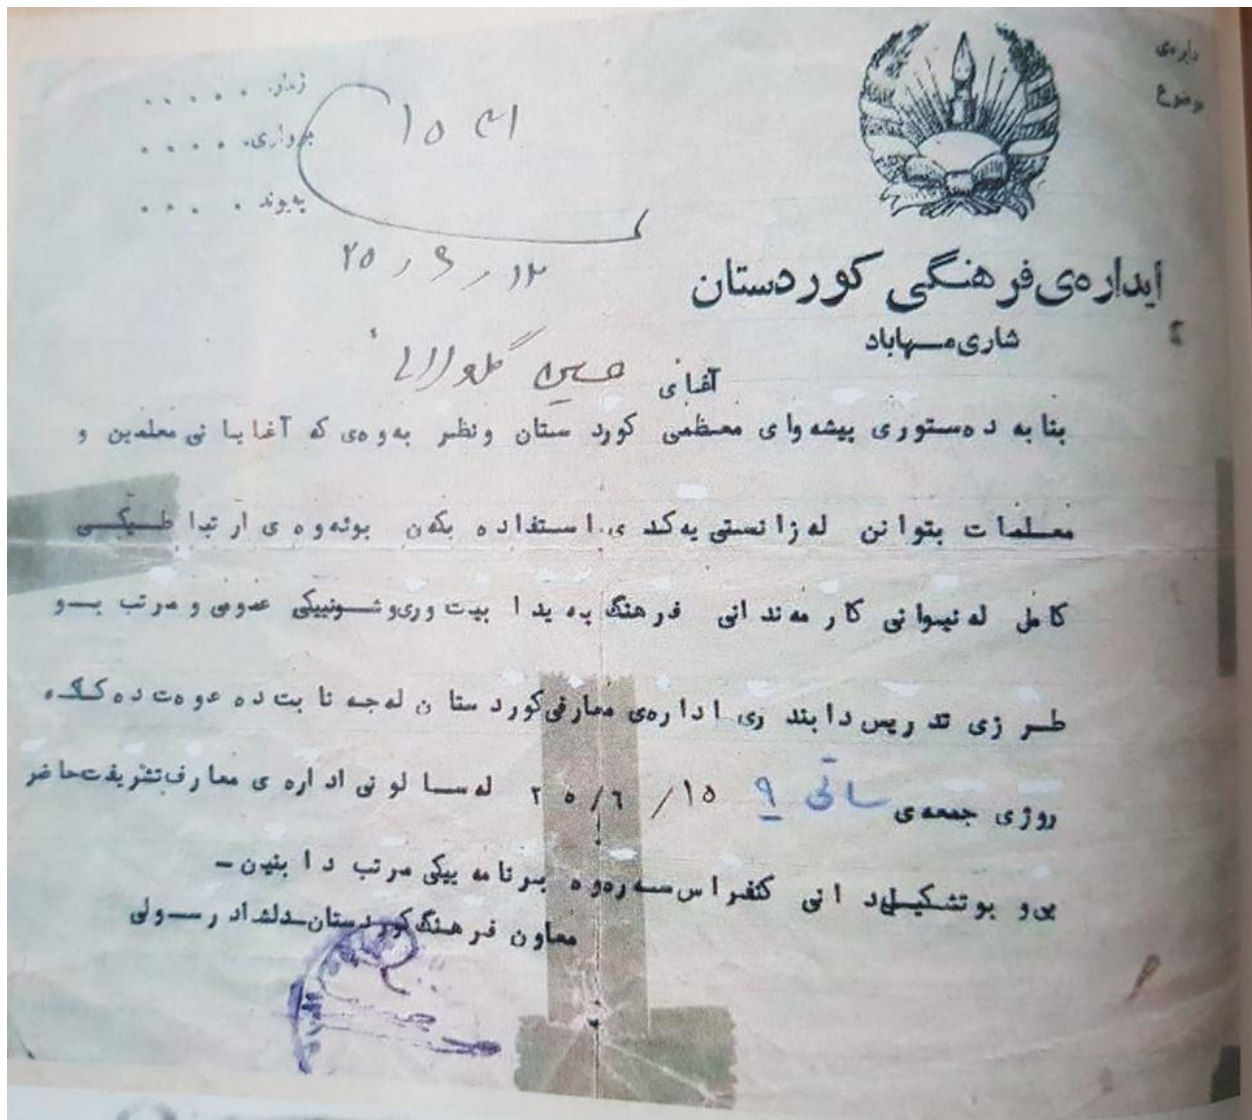 دایره‌ی
وضوع
ژماره . . . . .
بەرواری . . . .
پەیوند . . . .
١٢ / ٦ / ٢٥
ایداره‌ی فرهنگی کوردستان
شاری مهاباد
آغای حسین
بنا به ده‌ستوری پیشه‌وای معظمی کوردستان ونظر به‌وه‌ی که آغایا نی معلمین و
معلمات بتوانن له‌زانستی یه‌کدی استفاده بکه‌ن بوئه‌وه‌ی ارتبا طیکی
کامل له‌نیوانی کارمه‌ندانی فرهنگ په‌یدا بیت وری‌وشوینیکی عمومی و مرتب بو
طرزی تدریس دابندری اداره‌ی معارفی کوردستان له‌جه‌نابت ده‌عوه‌ت ده‌کا‌که
روژی جمعه‌ی ١٥/٦/٢٥ ساتی ٩ له‌سالونی اداره‌ی معارف تشریفت حاضر
بی‌و بو تشکیل‌دانی کنفراس سه‌ره‌وه برنامه‌ییکی مرتب دابنین –
معاون فرهنگ کوردستان–دلشاد رسولی